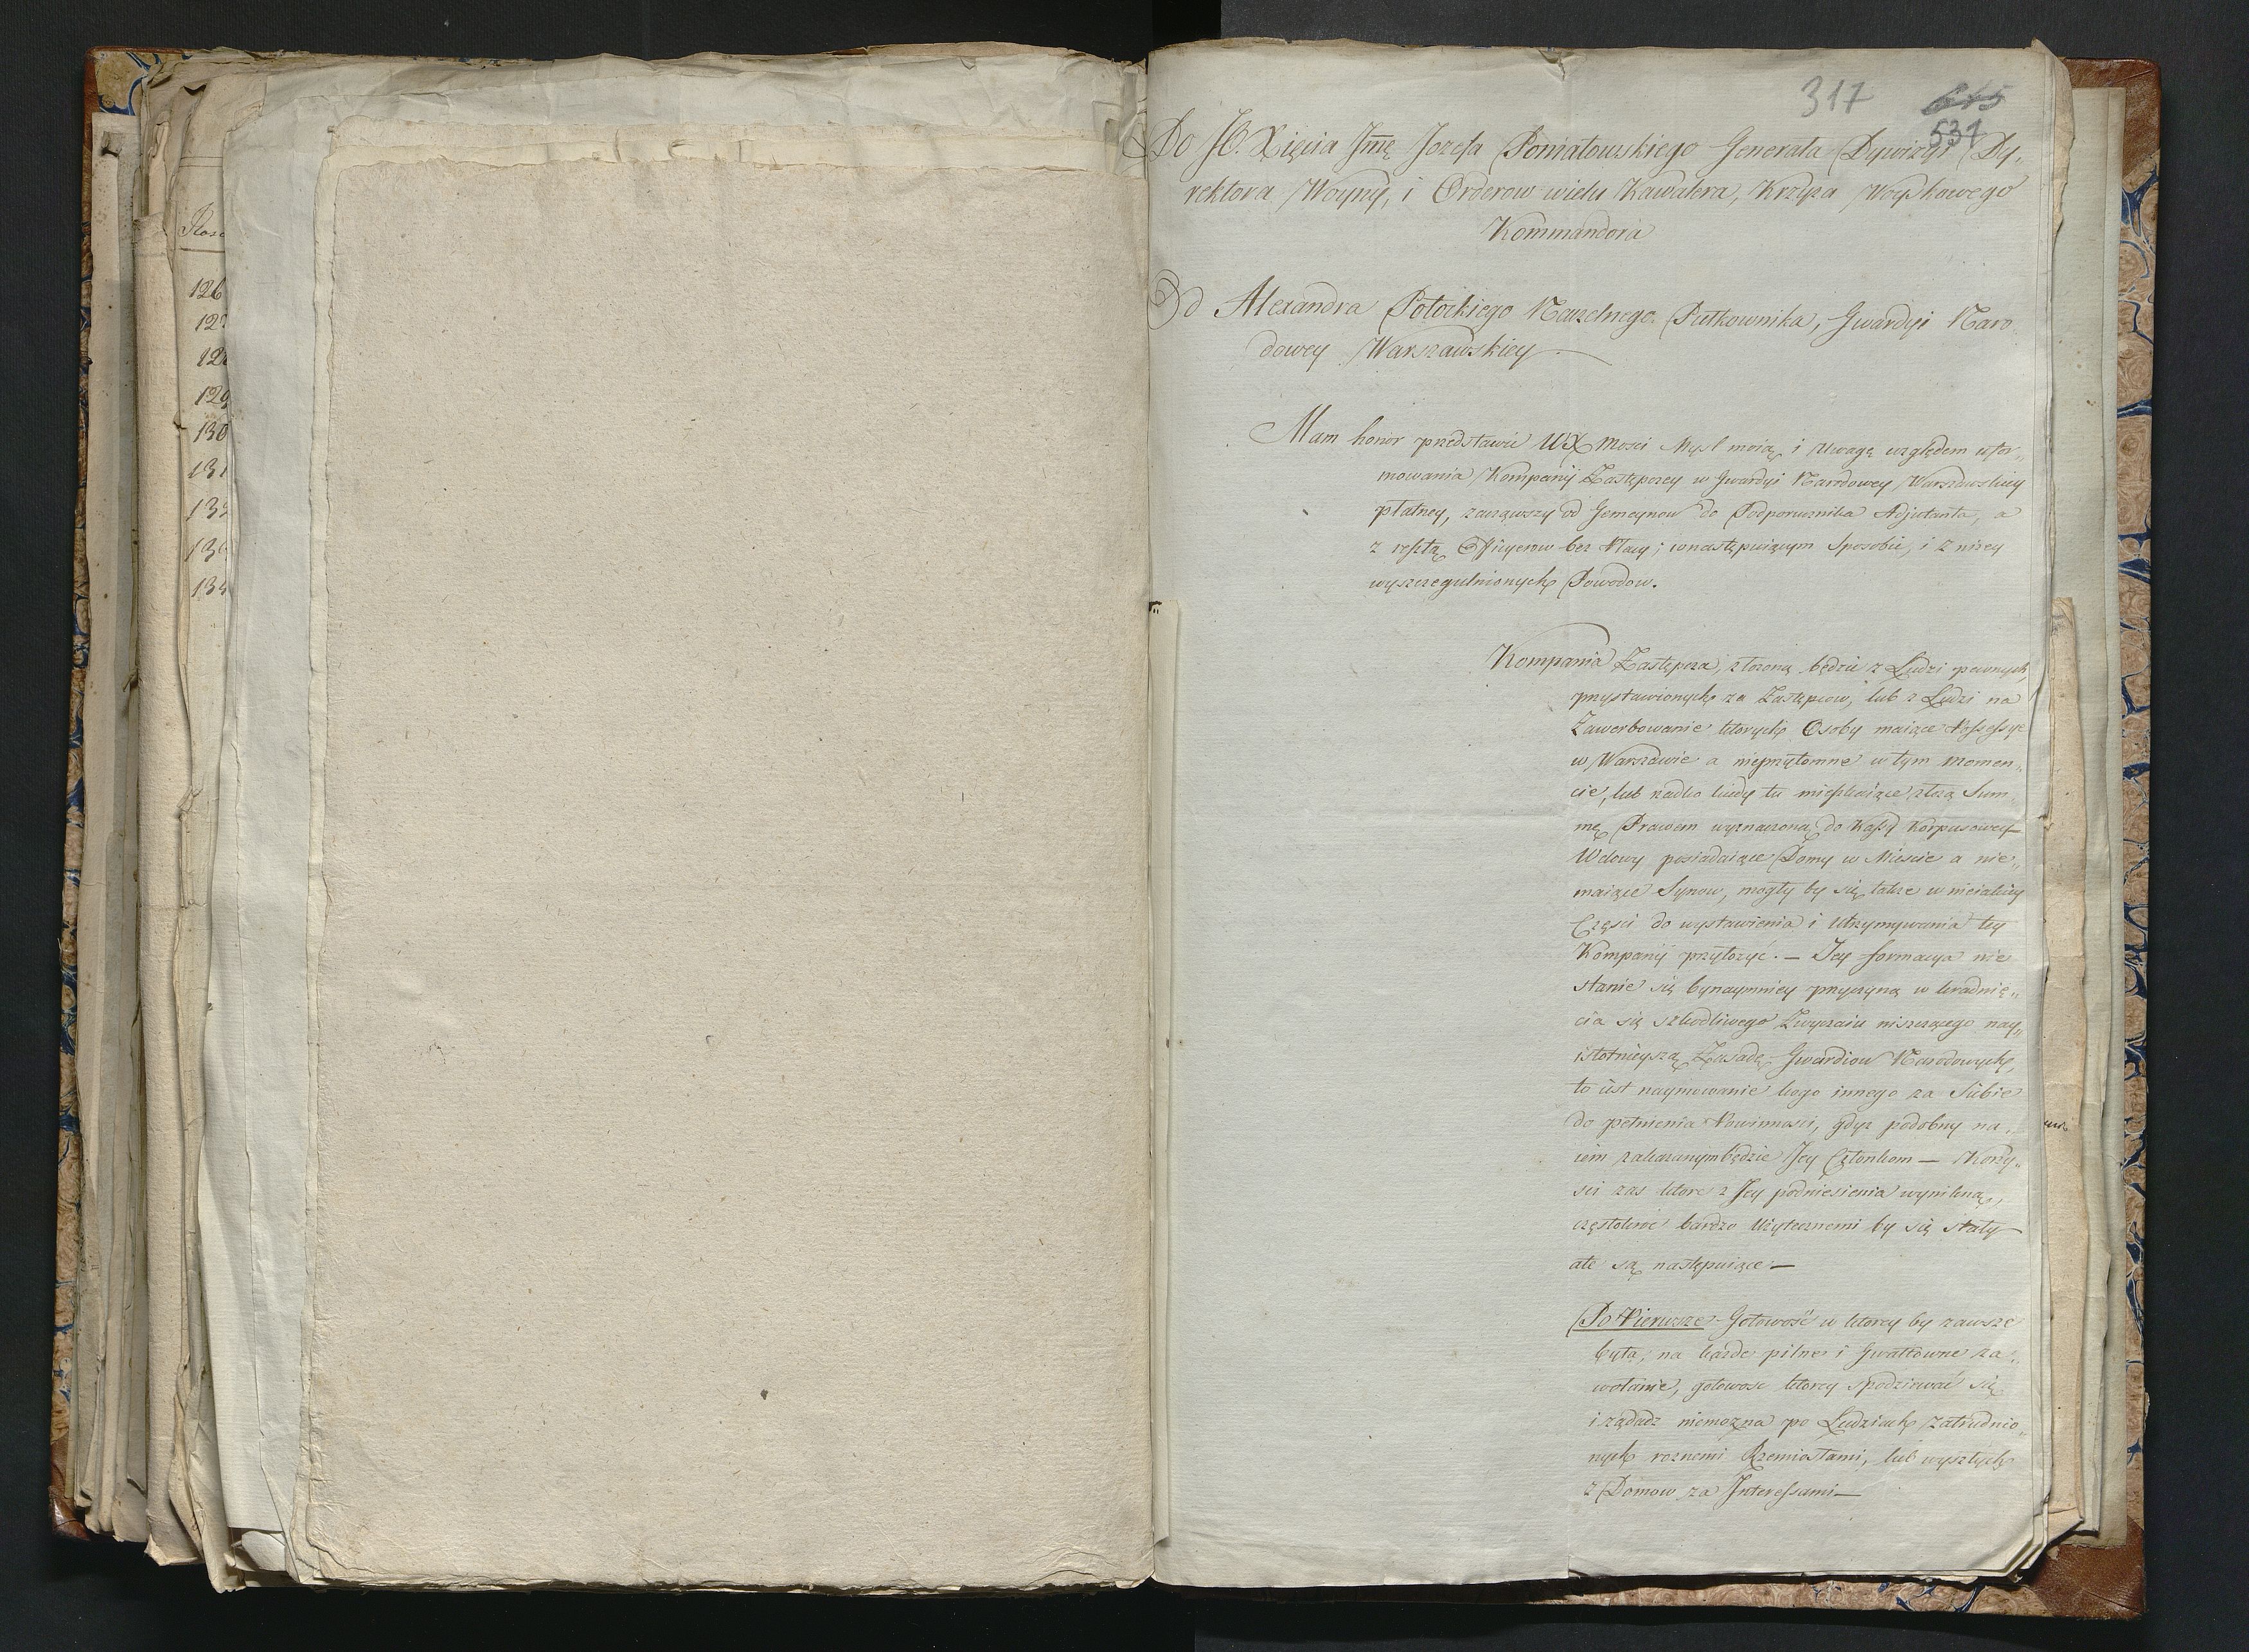 Rosc
126
127
128
129
130
131
132
134
317
615
531
Do JO. Xięcia Jmę Jozefa Poniatowskiego Generała Dywizyi Dy„
rektora Woyny, i Orderow wielu Kawalera, Krzyża Woyskowego
Kommandora
Od Alexandra Potockiego Naczelnego Pułkownika, Gwardyi Naro
dowey Warszawskiey.
Mam honor przedstawić WX Mosci Mysl moią i Uwagę względem ufor„
mowania Kompanij Zastępczey w Gwardyi Narodowey Warszawskiey
płatney, zacząwszy od Gemeynow do Podporucznika Adjutanta, a
z resztą Officyerow bez Płacy; w następuiącym Sposobie, i z niżey
wyszczegulnionych Powodow.
Kompania Zastępcza, złożona będzie z Ludzi pewnych,
przystawionych za Zastępcow, lub z Ludzi na
Zawerbowanie ktorych Osoby maiące Possessye
w Warszawie a nieprzytomne w tym momen„
cie, lub rzadko kiedy tu mieszkaiące złożą Sum„
mę Prawem wyznaczoną do Kassy Korpusowey—
Wdowy posiadaiące Domy w Miescie a nie„
maiące Synow, mogły by się także w nieiakiey
Częsci do wystawienia i utrzymywania tey
Kompanij przyłożyć. — Jey formacya nie
stanie się bynaymniey przyczyną wkradnię„
cia się szkodliwego Zwyczaiu niszczącego nay„
istotnieyszą Zasadę Gwardiow Narodowych,
to iest naymowanie kogo innego za Siebie
do pełnienia Powinnosci, gdyż podobny na„
iem zakazanym będzie Jey Członkom — Korzy„
sci zas ktore z Jey podniesienia wynikną,
częstokroć bardzo Użytecznemi by się stały
ale są następuiące —
Po Pierwsze Gotowość w ktorey by zawsze
była, na każde pilne i Gwałtowne za„
wołanie, gotowosc ktorey spodziewać się
i żądadz niemożna po Ludziach zatrudnio„
nych roznemi Rzemiosłami, lub wyszłych
z Domow za Interessami—